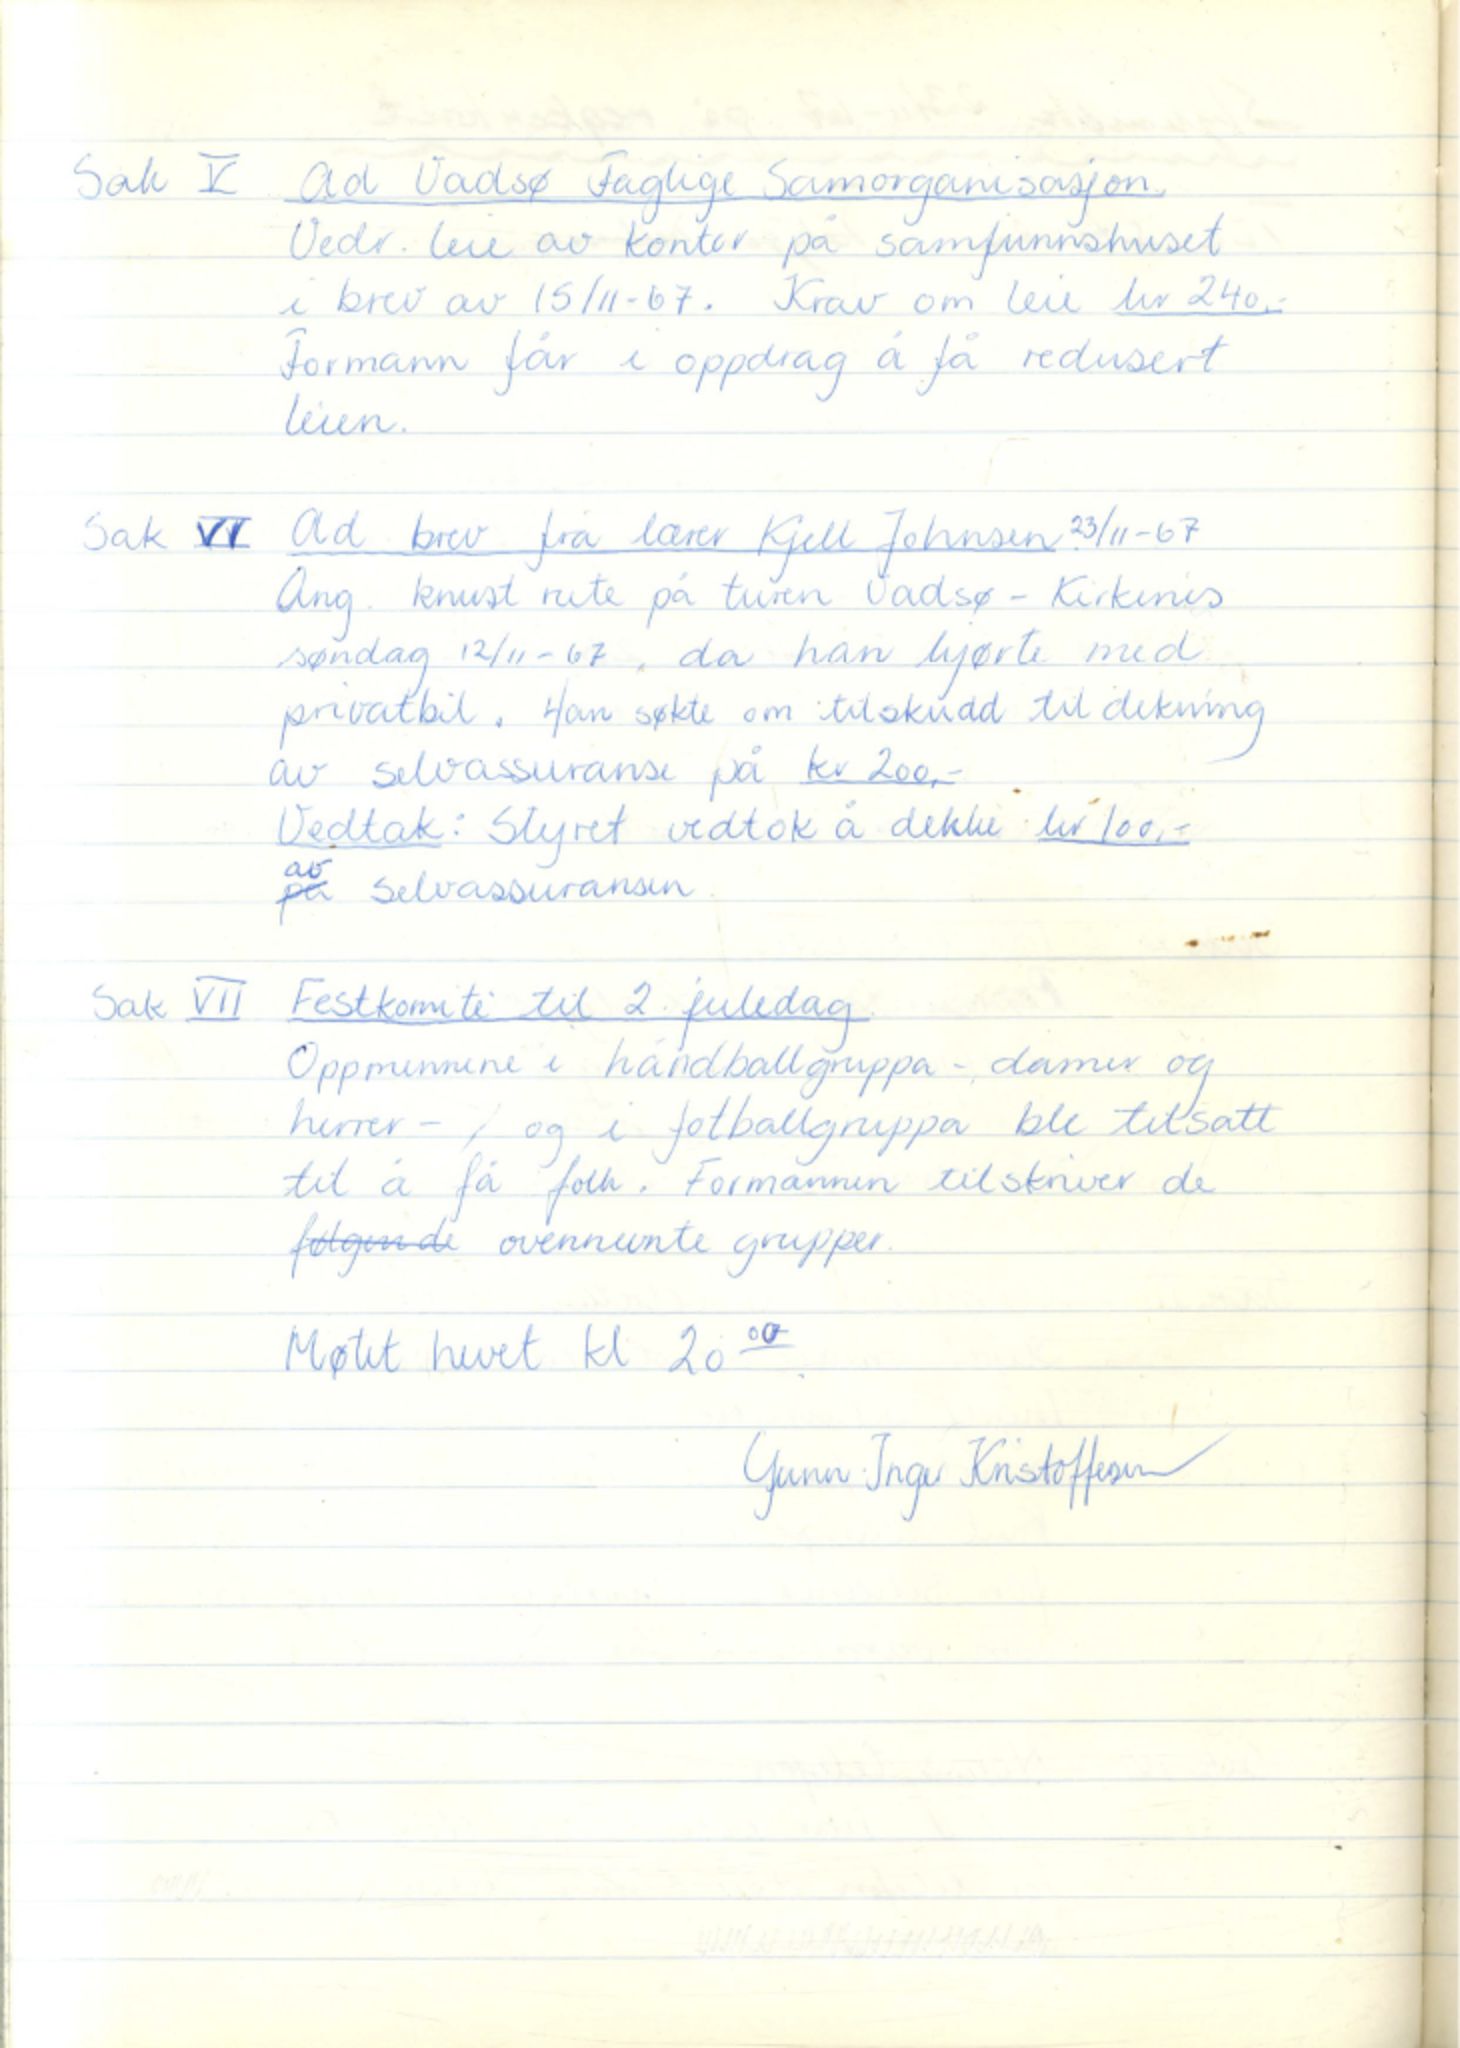 Sak V Ad Vadsø Faglige Samorganisasjon.
Vedr. leie av kontor på samfunnshuset
i brev av 15/11-67. Krav om leie kr 240,-
Formann får i oppdrag å få redusert
leien.
Sak VI Ad brev fra lærer Kjell Johnsen 23/11-67
Ang. knust rute på turen Vadsø - Kirkenes
søndag 12/11-67, da han kjørte med
privatbil. Han søkte om tilskudd til dekning
av selvassuranse på kr 200,-
Vedtak: Styret vedtok å dekke kr 100,-
av
på selvassuransen
Sak VII Festkomité til 2. juledag
Oppmennene i håndballgruppa -, damer og
herrer - , og i fotballgruppa ble tilsatt
til å få folk. Formannen tilskriver de
følgende ovennevnte grupper.
Møtet hevet kl 20 00
Gunn Inger Kristoffersen